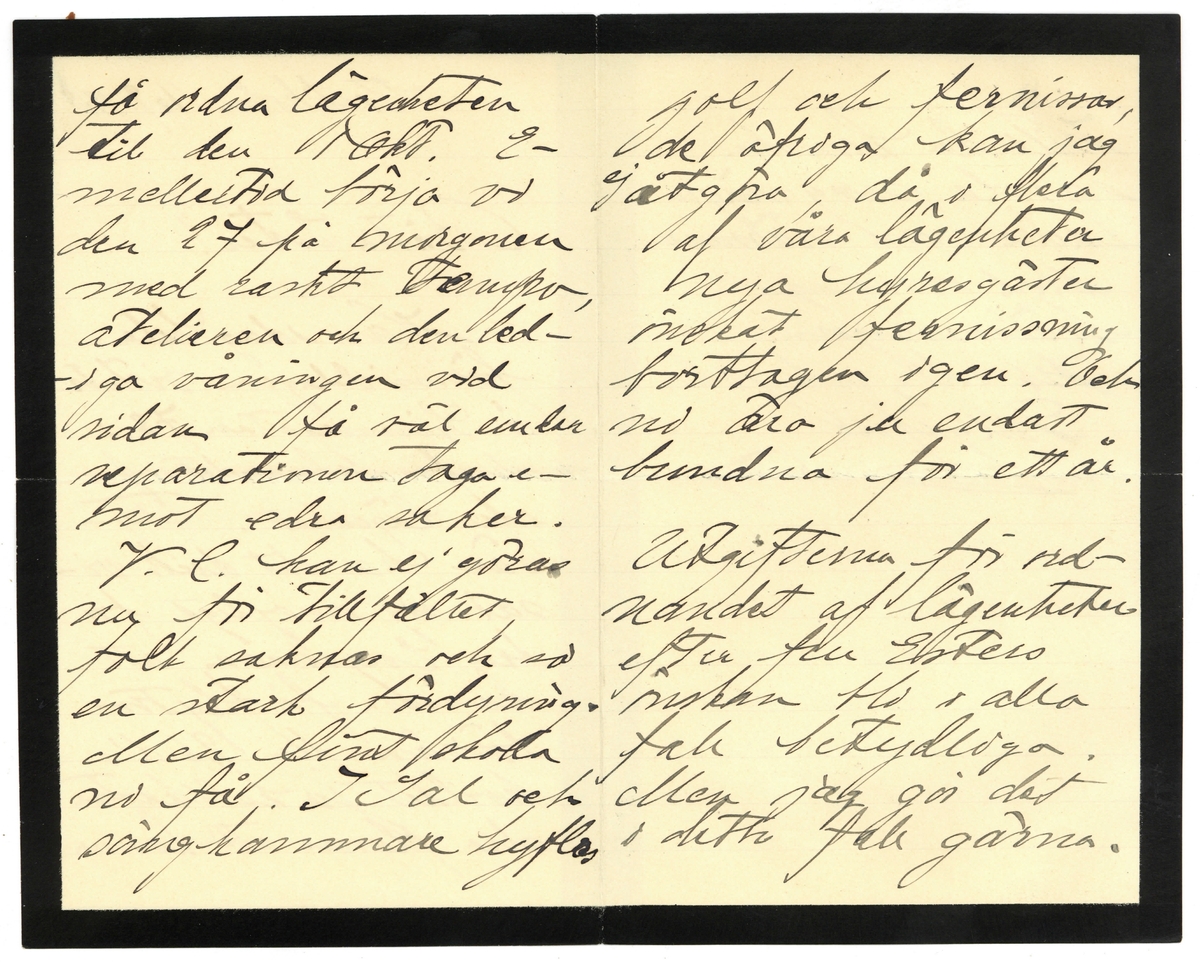 få ordna lägenheten
till den 1 Okt. E-
mellertid börja vi
den 27 på morgonen
med raskt tempo,
atelieren och den led-
-iga våningen vid
sidan få väl under
reparationen taga e-
mot edra saker.
V. C. kan ej göras
nu för tillfället,
folk saknas och så
en stark fördyring.
Men fint skola
ni få. I Sal och
sängkammare hyflas
golf och fernissas,
de öfriga kan jag
ej åtgöra, då i flera
af våra lägenheter
nya hyresgäster
önskat fernissning
borttagen igen. Och
ni äro ju endast
bundna för ett år.
Utgifterna för ord-
nandet af lägenheten
efter fru Esters
önskan bli i alla
fall betydliga.
Men jag gör det
i detta fall gärna.